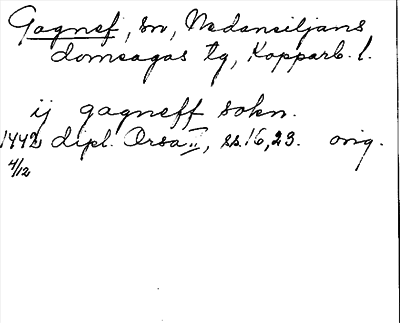 Gagnef, sn, Nedansiljans
domsagas tg, Kopparb. l.
ij gagneff sokn.
1442 dipl. Orsa II, ss. 16, 23. orig.
4/12